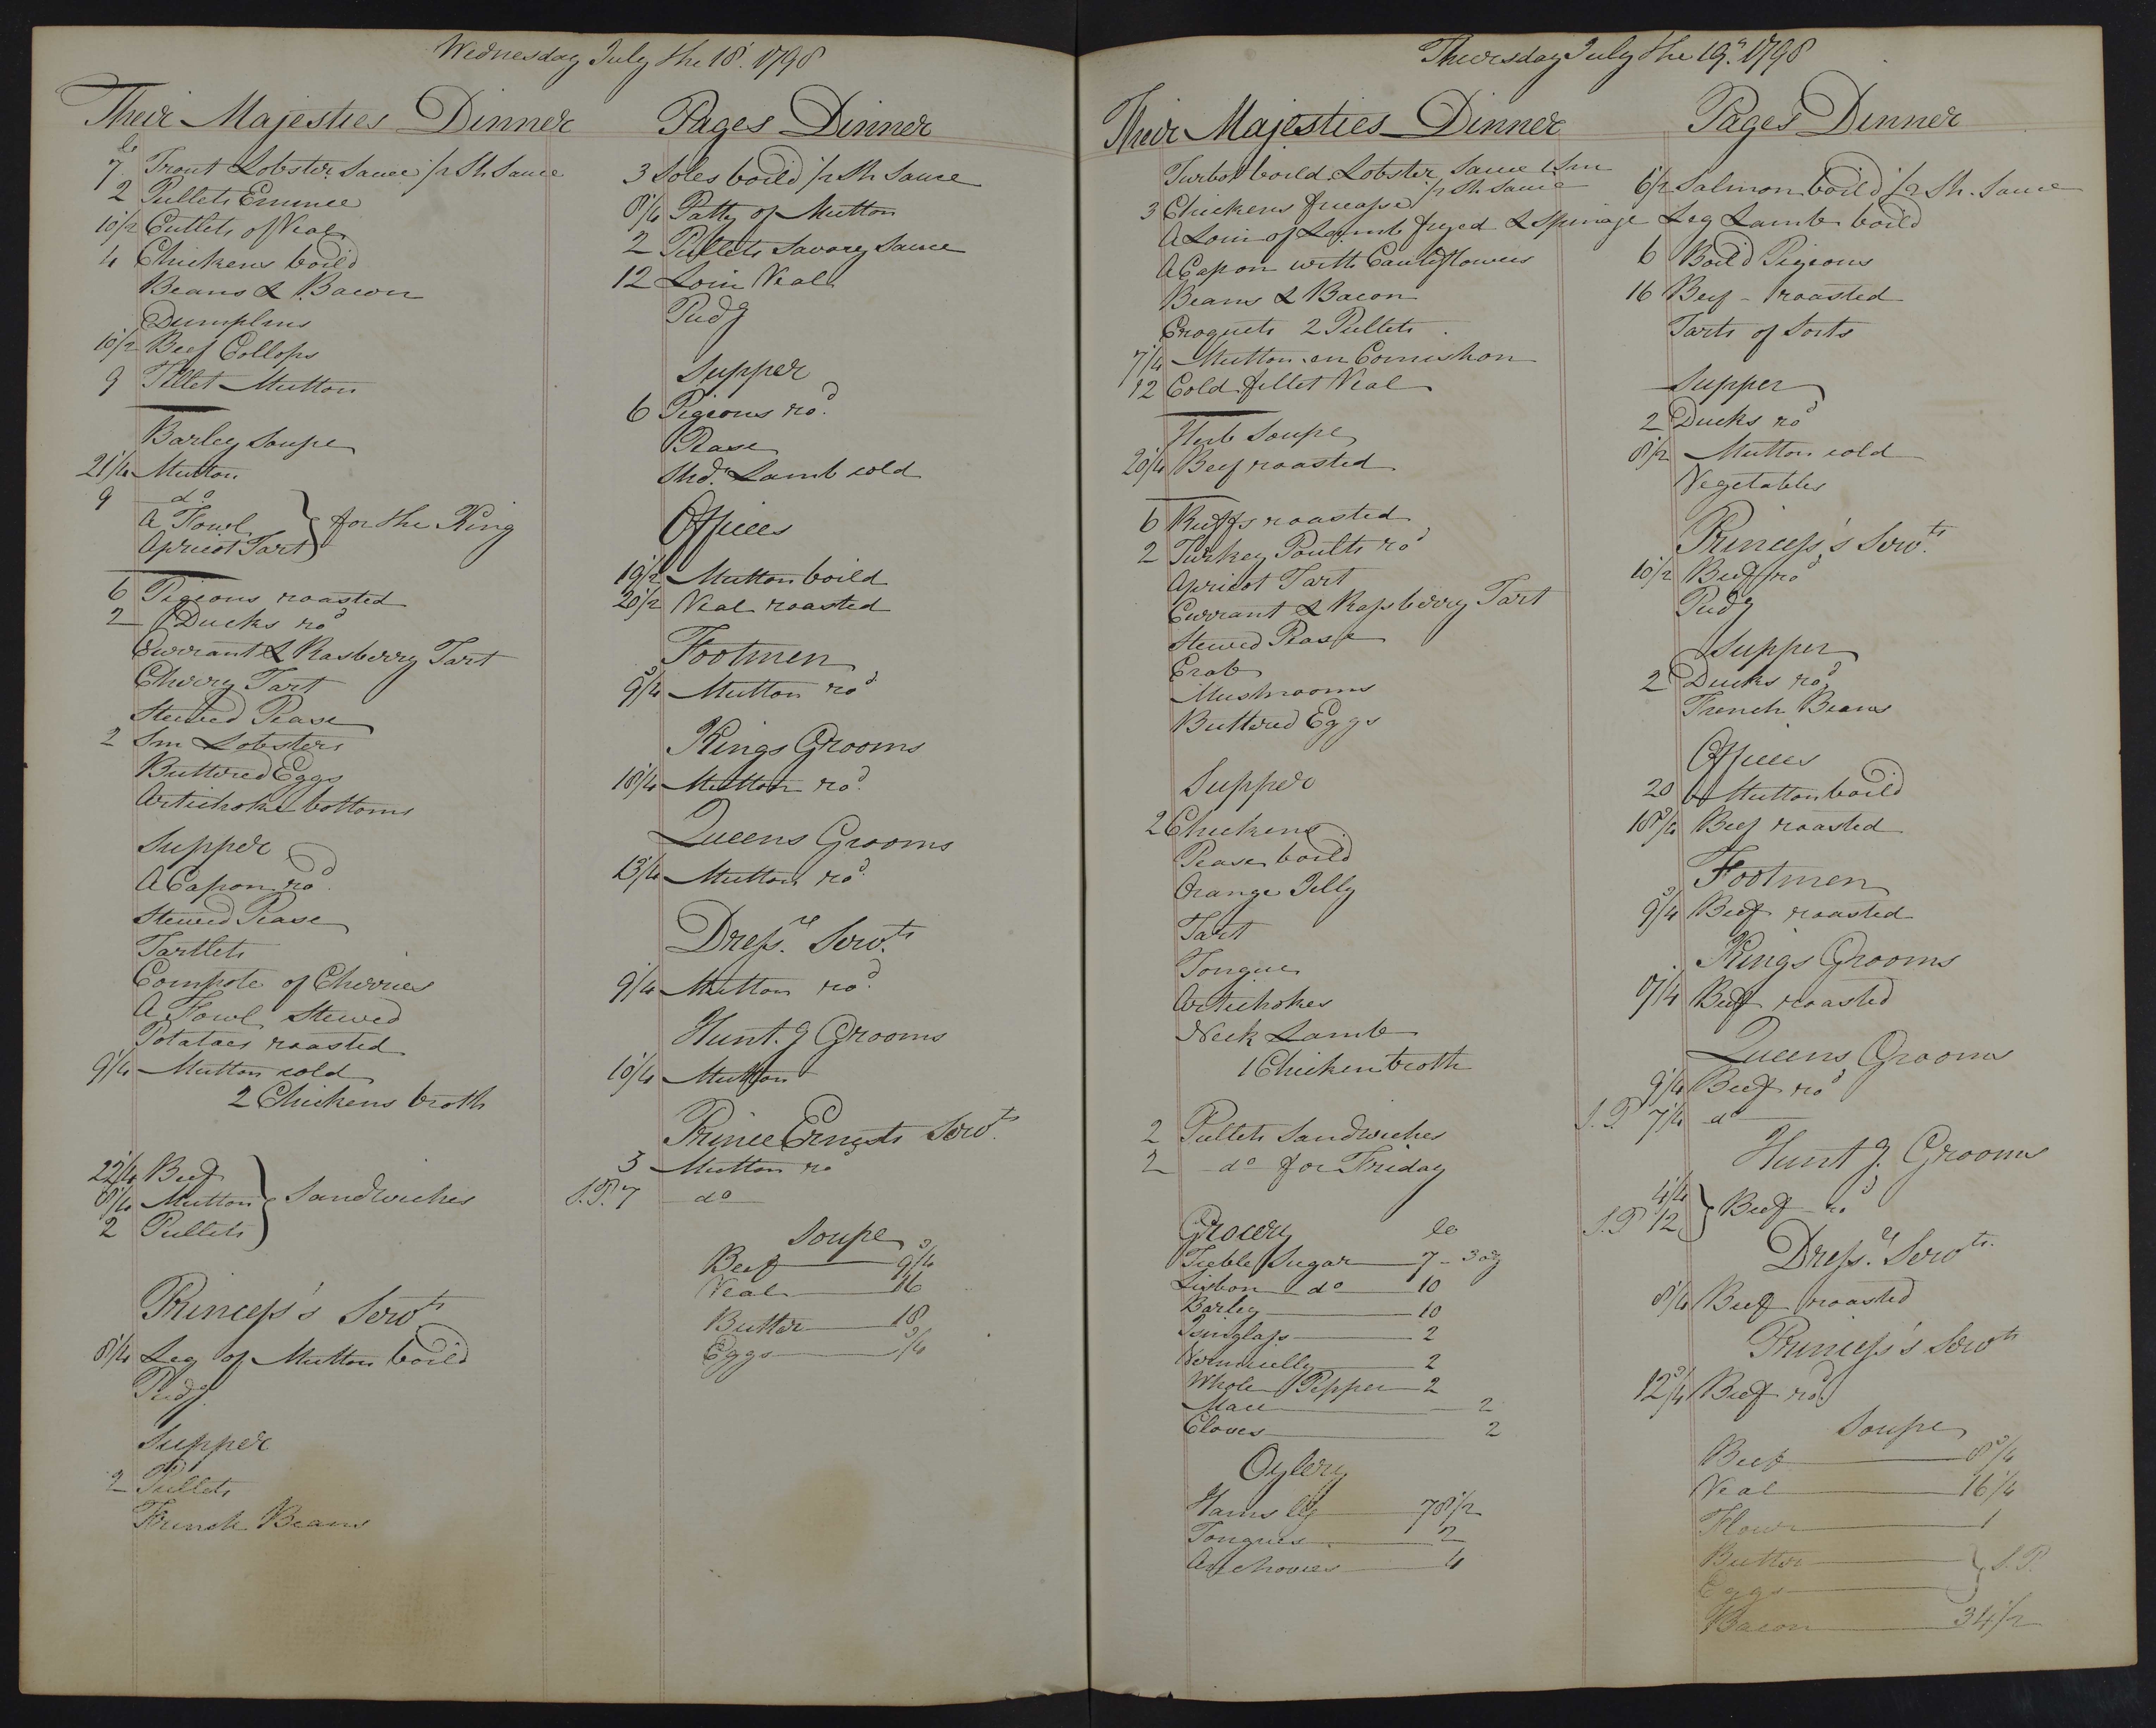 Wednesday July the 18. 1798
Their Majesties Dinner
lb
7 Trout Lobster Sauce 1/2 Sh Sauce
2 Pullets Emince
10 1/2 Cutlets of Veal
4 Chickens boild
Beans & Bacon
Dumplins
10 1/2 Beef Collops
9 Fillet Mutton
Barley Soupe
21 1/4 Mutton
9 do
A Fowl
Apricot Tart
} for the King
6 Pigeons roasted
2 Ducks rod
Currant & Rasberry Tart
Cherry Tart
Stewed Pease
2 Sm Lobsters
Buttered Eggs
Artichoke bottoms
Supper
A Capon rod
Stewed Pease
Tartlets
Compote of Cherries
A Fowl Stewed
Potatoes roasted
9 1/4 Mutton cold
2 Chickens broth
22 1/4 Beef
8 1/4 Mutton
2 Pullets
} Sandwiches
Princess's Servts
8 1/4 Leg of Mutton boild
Pudg
Supper
2 Pullets
French Beans
Pages Dinner
3 Soles boild 1/2 Sh Sauce
8 1/4 Patty of Mutton
2 Pullets Savory Sauce
12 Loin Veal
Pudg
Supper
6 Pigeons rod
Pease
Shdr Lamb cold
Offices
19 1/2 Mutton boild
20 1/2 Veal roasted
Footmen
9 3/4 Mutton rod
Kings Grooms
18 1/4 Mutton rod
Queens Grooms
13 1/4 Mutton rod
Dress.rs Servts
9 1/4 Mutton rod
Hunt.g Grooms
10 1/4 Mutton
Prince Ernests Servts
3 Mutton ro
S.P. 7 do
Soupe
Beef 9 3/4
Veal 16
Butter 18
Eggs 3/4
Thursday July the 19. 1798
Their Majesties Dinner
Turbot boild Lobster Sauce 1 Sm
3 Chickens fricasse 1/2 Sh Sauce
A Loin of Lamb fryed & Spinage
A Capon with Cauliflowers
Beans & Bacon
Croquets 2 Pullets
7 1/4 Mutton en Cornishon
12 Cold fillet Veal
Herb Soupe
20 1/4 Beef roasted
6 Ruffs roasted
2 Turkey Poults rod
Apricot Tart
Currant & Raspberry Tart
Stewed Pease
Crab
Mushrooms
Buttered Eggs
Supper
2 Chickens
Pease boild
Orange Jelly
Tart
Tongue
Artichokes
Neck Lamb
1 Chicken broth
2 Pullets Sandwiches
2 do for Friday
Grocery lb
Treble Sugar 7 - 3 oz
Lisbon do 10
Barley 10
Isinglass 2
Vermicelly 2
Whole Pepper 2
Mace 2
Cloves 2
Oylery
Hams 78 1/2
Tongues 2
Anchovies 4
Pages Dinner
6 1/2 Salmon boild 1/2 Sh. Sauce
Leg Lamb boild
6 Boild Pigeons
16 Beef - roasted
Tarts of Sorts
Supper
2 Ducks rod
8 1/2 Mutton cold
Vegetables
Princess's Servts
10 1/2 Beef rod
Pudg
Supper
2 Ducks rod
French Beans
Offices
20 Mutton boild
18 3/4 Beef roasted
Footmen
9 3/4 Beef roasted
Kings Grooms
17 1/4 Beef roasted
Queens Grooms
9 1/4 Beef rod
S.P. 7 1/4 do
Hunt g. Grooms
4 1/4
S.P. 12
} Beef - rod
Dress.rs Servts
8 1/4 Beef roasted
Princess's Servts
12 3/4 Beef rod
Soupe
Beef 8 3/4
Veal 16 1/4
Flour 1
Butter
Eggs
} S.P.
Bacon 34 1/2